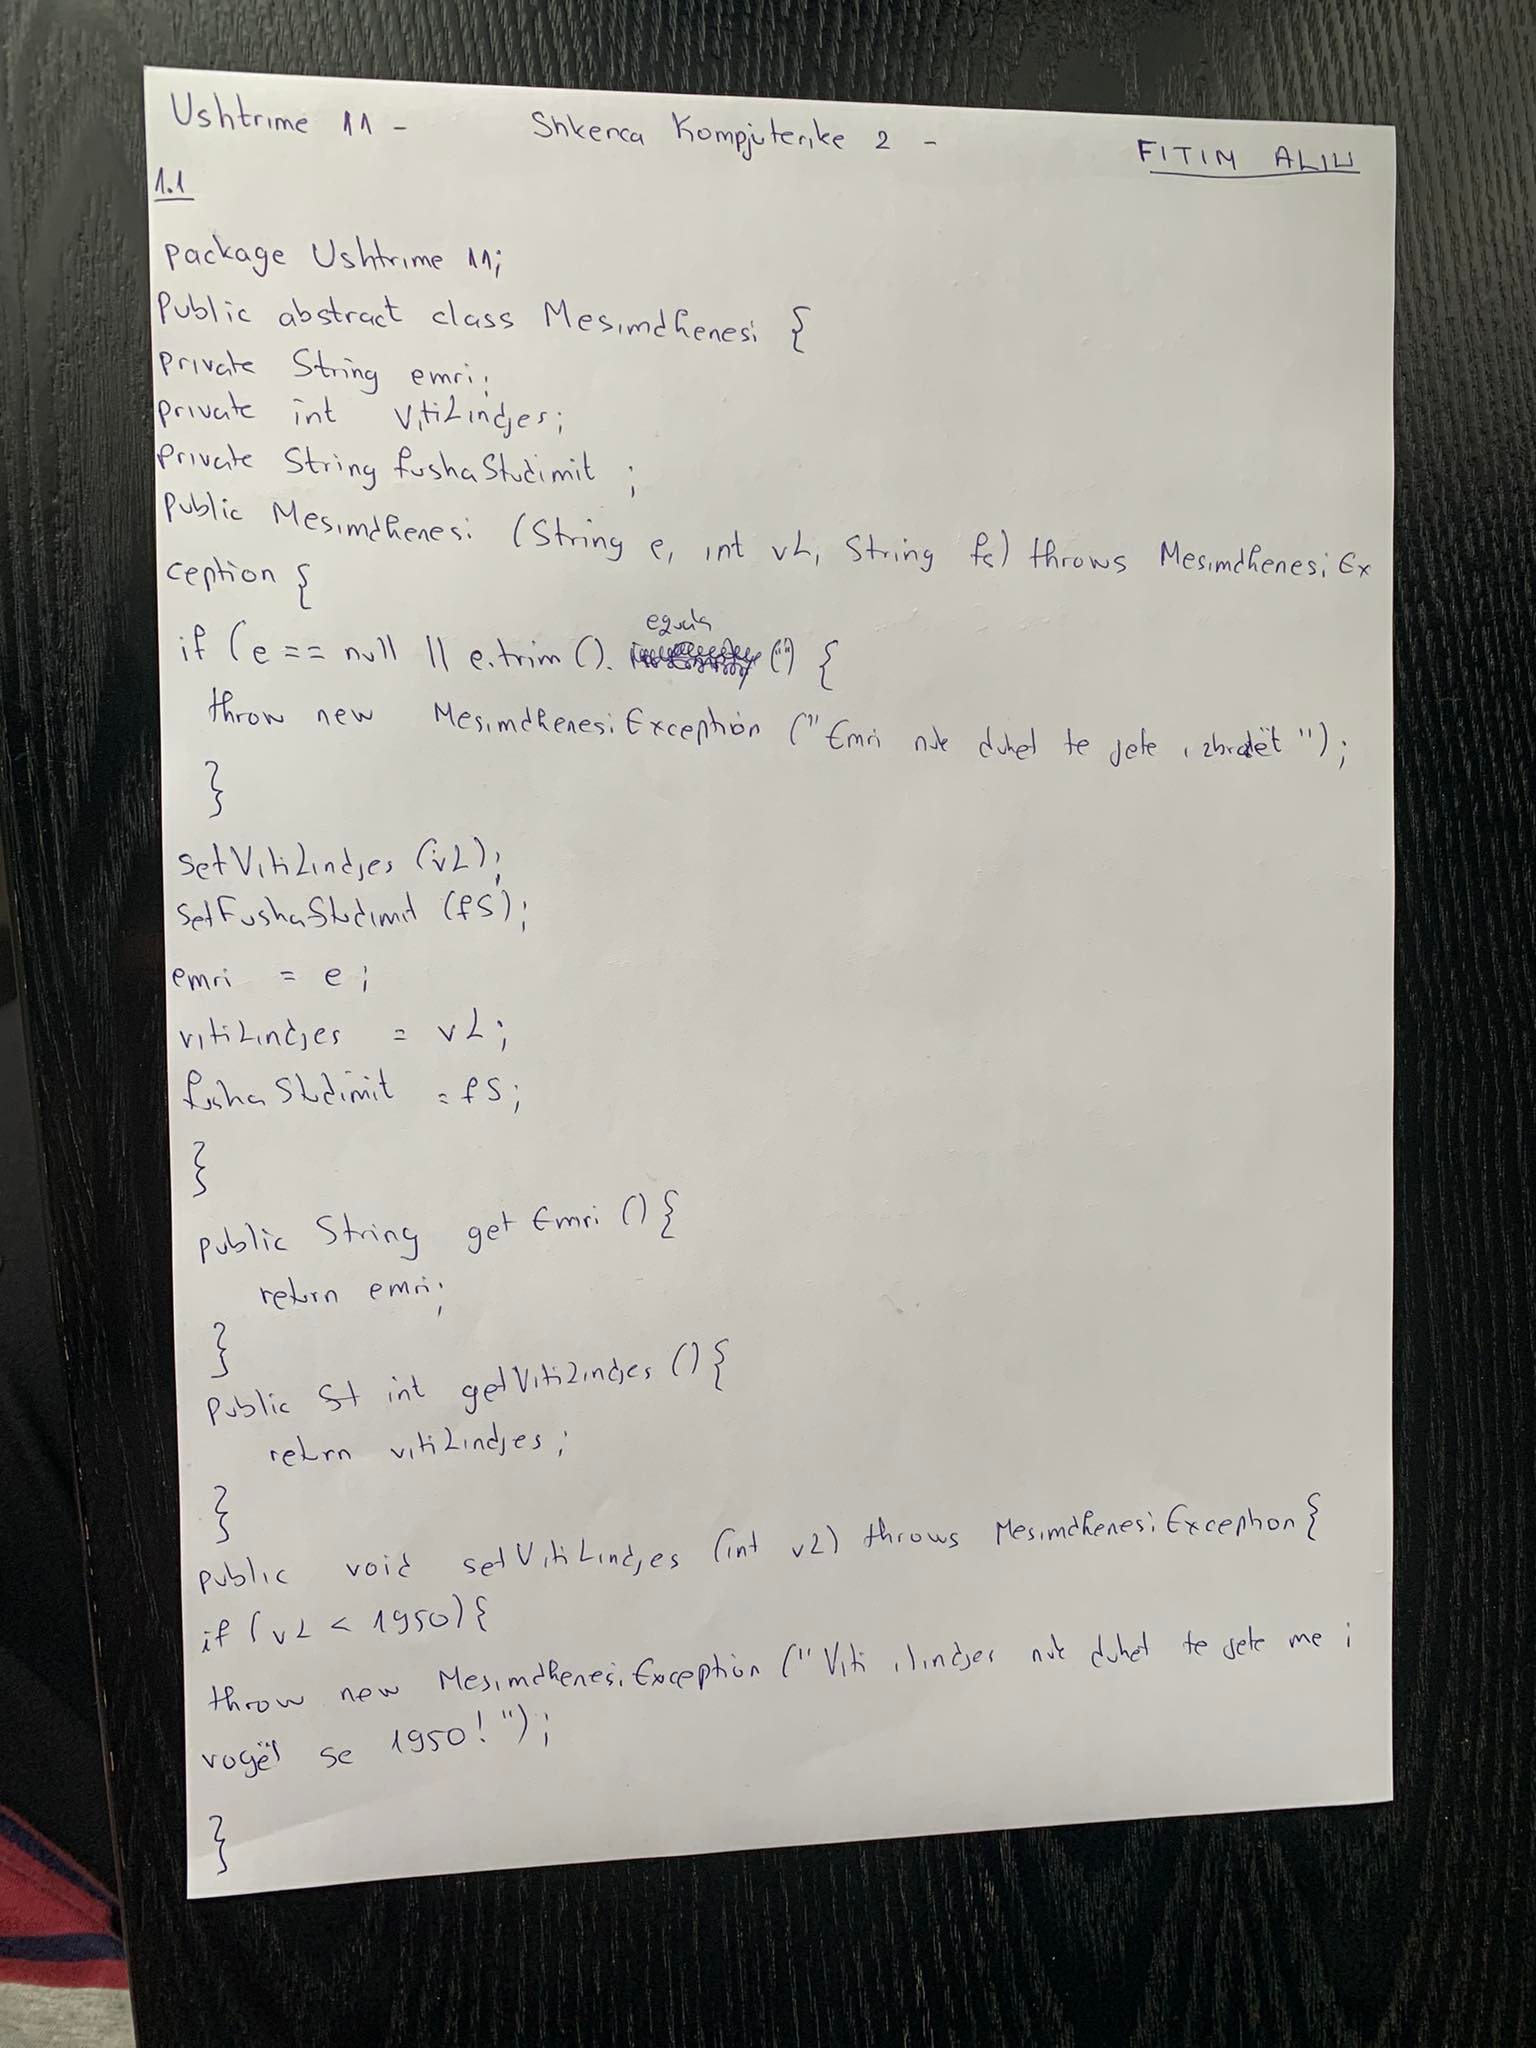 Ushtrime 11 - Shkenca Kompjuterike 2 - FITIM ALIU
1.1
package Ushtrime 11;
Public abstract class Mesimdhenesi {
private String emri;
private int vitiLindjes;
private String fushaStudimit ;
Public Mesimdhenesi (String e, int vL, String fs) throws MesimdhenesiEx
ception {
if (e == null || e.trim(). equals ("") {
throw new MesimdhenesiException ("Emri nuk duhet te jete i zbrazët");
}
setVitiLindjes (vL);
setFushaStudimit (fS);
emri = e;
vitiLindjes = vL;
fushaStudimit = fS;
}
public String getEmri () {
return emri;
}
public St int getVitiLindjes () {
return vitiLindjes;
}
public void setVitiLindjes (int vL) throws MesimdhenesiException {
if (vL < 1950) {
throw new MesimdhenesiException ("Viti i lindjes nuk duhet te jete me i
vogël se 1950!");
}